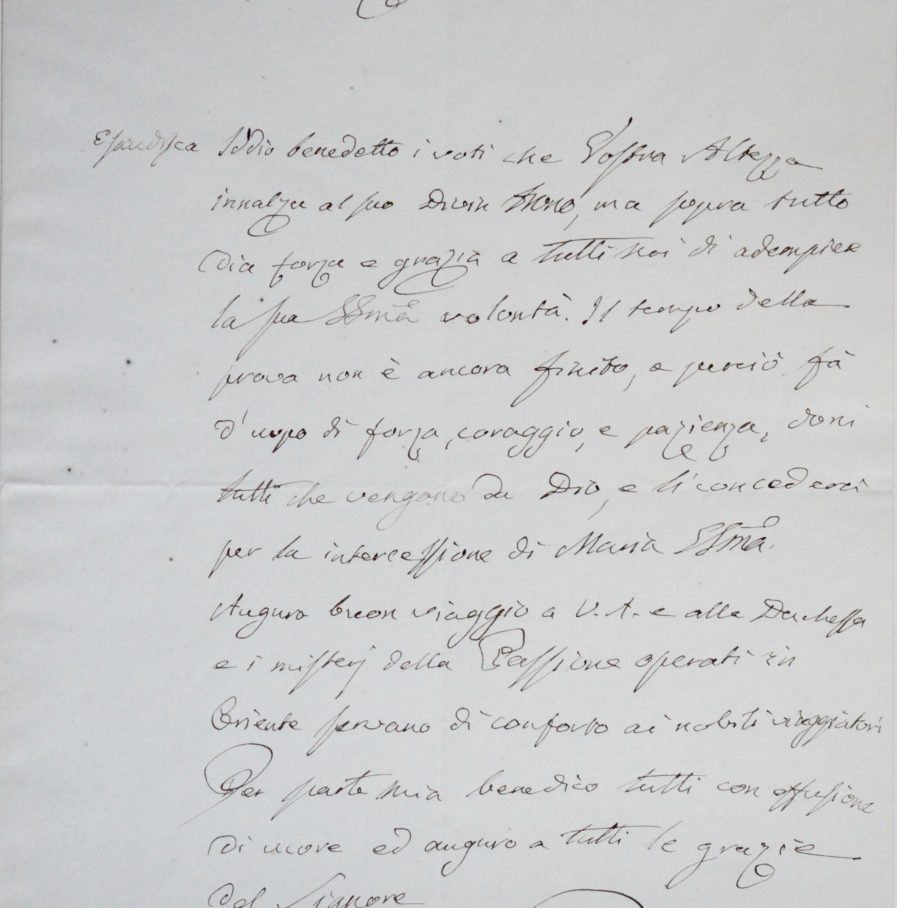 Esaudisca Iddio benedetto i voti che Vostra Altezza
innalza al suo Divin Trono, ma sopra tutto
dia forza e grazia a tutti noi di adempiere
la sua SSmã volontà. Il tempo della
prova non è ancora finito, e perciò fà
d'uopo di forza, coraggio, e pazienza, doni
tutti che vengono da Dio, e li concederà
per la intercessione di Maria SSmã.
Auguro buon viaggio a V. A. e alla Duchessa
e i misterj della Passione operati in
Oriente servano di conforto ai nobili viaggiatori
Per parte mia benedico tutti con effusione
di cuore ed auguro a tutti le grazie
del Signore